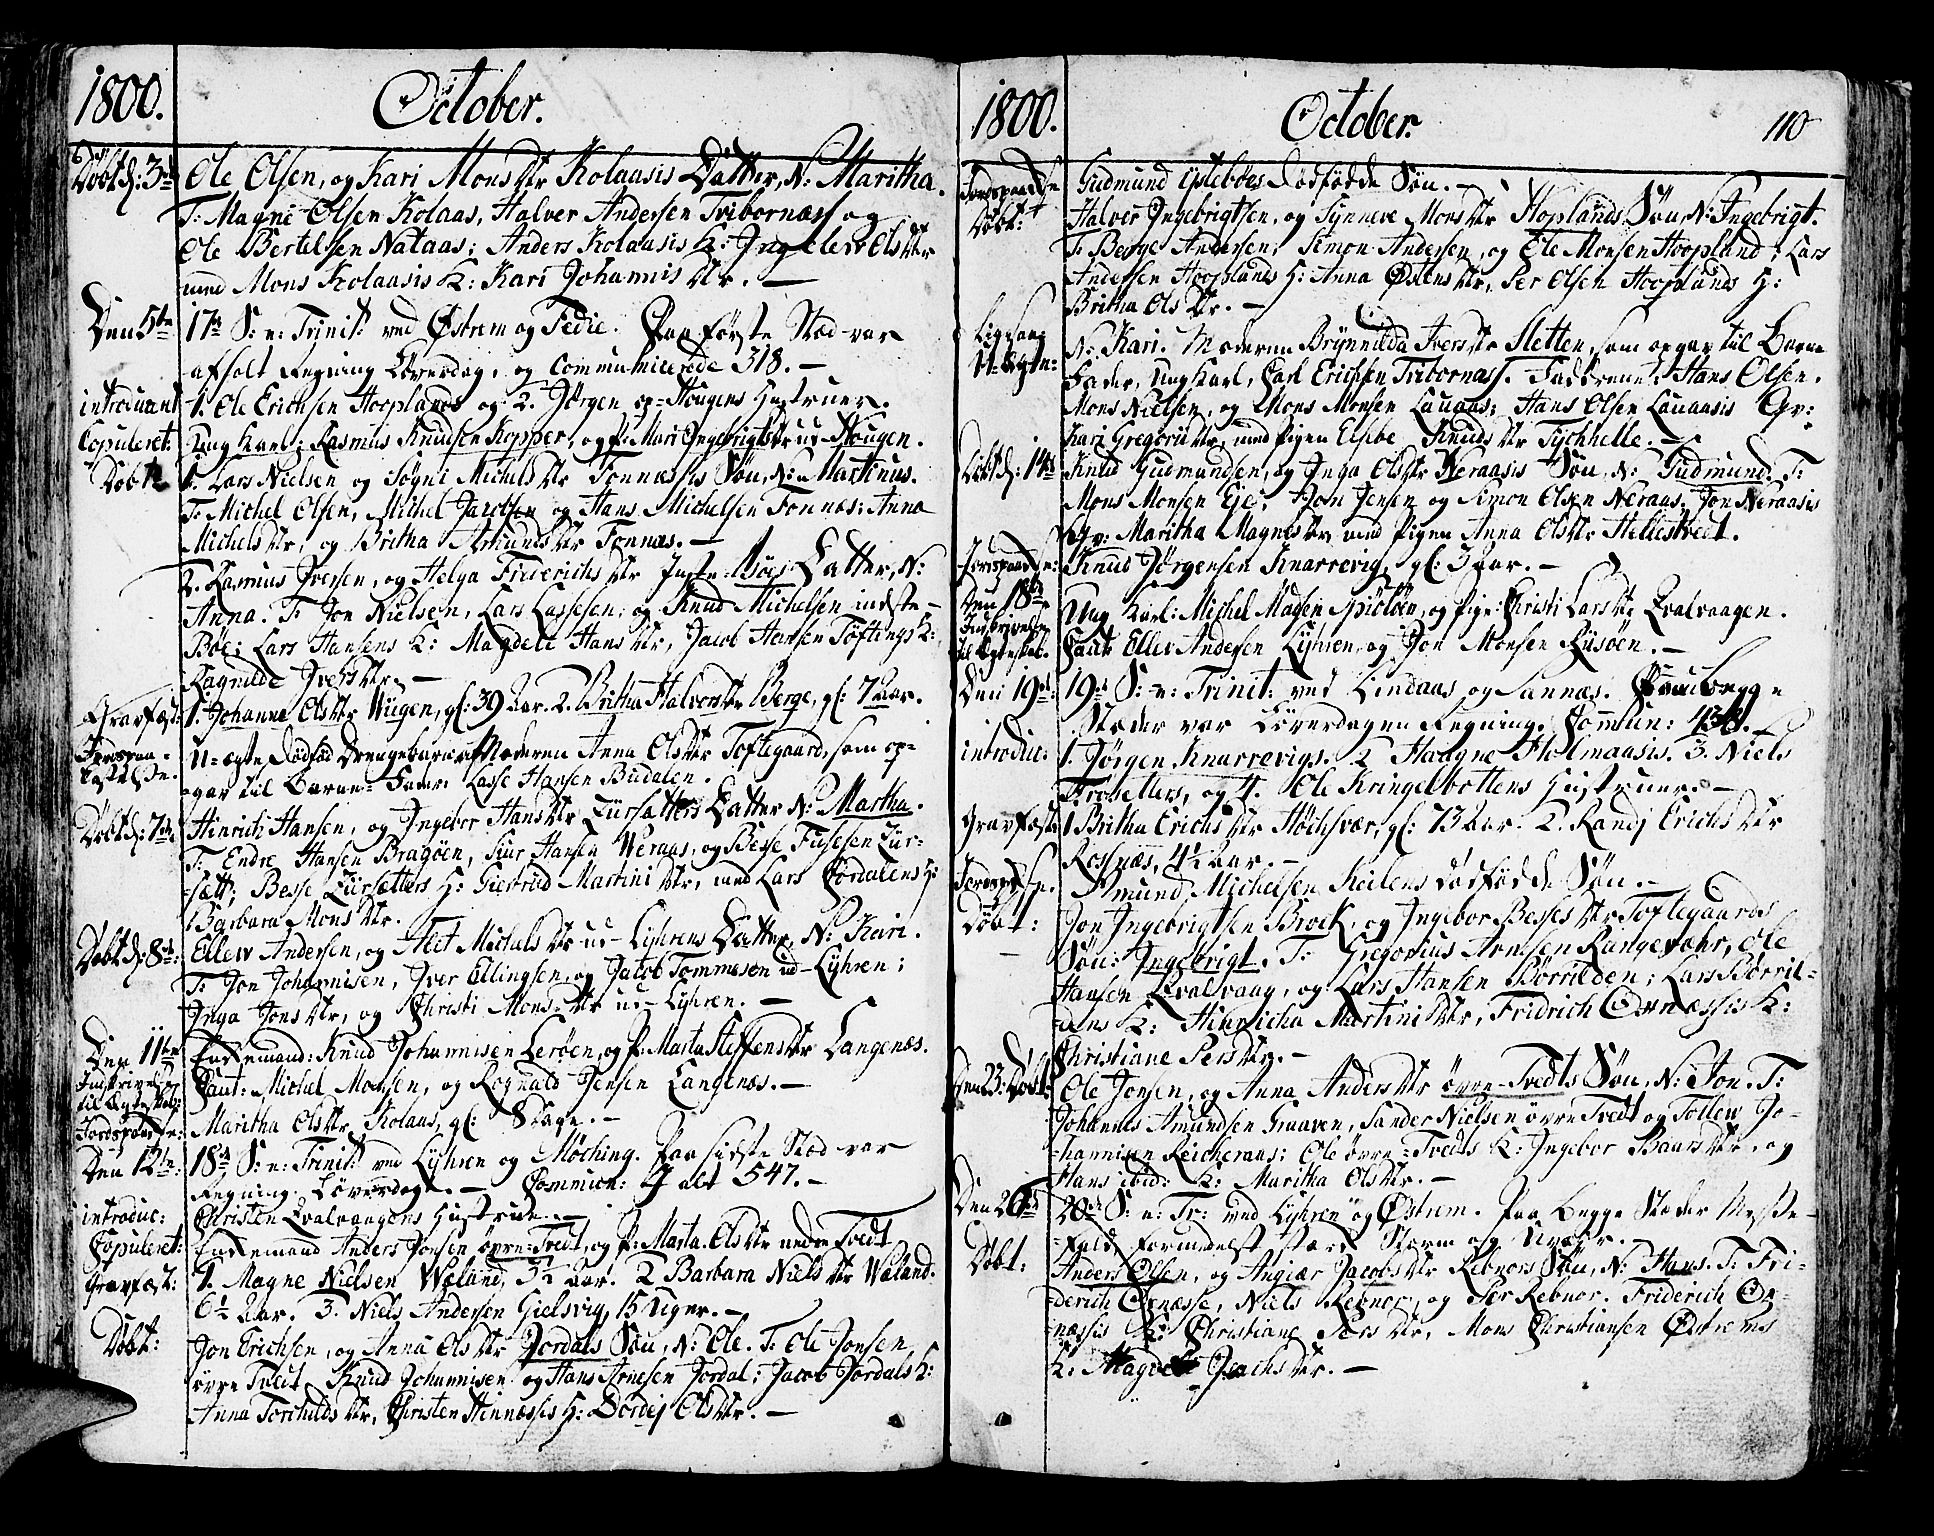 1800. October.
Döbt d: 3de Ole Olsen, og Kari Mons Dtr Kolaasis Datter, N: Maritha.
T: Magne Olsen Kolaas, Halver Andersen Tvibornæss og
Ole Bertelsen Nataas; Anders Kolaasis K: Ingelev Ols Dtr
med Mons Kolaasis K: Kari Johannis Dtr. —
Den 5te 17de S: e: Trinit: ved Östrem og Sedie. Paa förste Sted var
afholt Regning Löverdag, og Communicerede 318. —
introduceret 1. Ole Erichsen Hooplands og 2. Jörgen Hougens Hustruer.
Copuleret: Ung Karl: Rasmus Knudsen Kopper, og P: Mari Ingebrigts Dtr ud-Hougen.
Döbt 1. Lars Nielsen og Sögni Michels Dtr Fonnæssis Sön, N: Martinus.
T: Michel Olsen, Michel Jacobsen og Hans Michelsen Fonnæs; Anna
Michels Dtr, og Britha Amunds Dtr Fonnæs. —
2. Rasmus Iversen, og Helga Friderichs Dtr Inste-Böes Datter, N:
Anna. T: Jon Nielsen, Lars Lassesen, og Knud Michelsen indste-
Böe; Lars Hansens K: Magdele Hans Dtr, Jacob Hansen Töftings K:
Ragnilde Ivers Dtr. —
Gravfæst: 1. Johanne Ols Dtr Wügen, gl: 39 Aar. 2. Britha Halvors Dtr Berge, gl: 7 Aar.
Jordspaa- U-ægte Dödföd Drengebarn af Moderen Anna Ols Dtr Toftegaard, som op-
kastelse. gav til Barne-Fader Lasse Hansen Budalen.
Döbt d: 7de Hinrich Hansen, og Ingebor Hans Dtr Eursætters Datter N: Martha.
T: Endre Hansen Bragöen, Siur Hansen Weraas, og Besse Fusesen Eur-
sætt; Besse Eursætters H: Giertrud Martini Dtr, med Lars Dördalens H:
Barbara Mons Dtr.
Döbt d: 8de: Ellew Andersen, og Alet Michels Dtr ud-Lyhrens Datter, N: Kari.
T: Jon Johannisen, Iver Ellingsen, og Jacob Tommesen ud-Lyhren;
Inga Jons Dtr, og Christi Mons Dtr ud-Lyhren. —
Den 11te Enkemand: Knud Johannisen Leröen, og P: Marta Steffens Dtr Langenæs.
Indskrivelse Caut: Michel Monsen, og Rognald Jensen Langenæs. —
til Ægteskab:
Jordspaask: Maritha Ols Dtr Kolaas, gl: 8 Dage. —
Den 12te: 18de S: e: Trinit: ved Lyhren og Möching. Paa sidste Sted var
Regning Löverdage. — Commun: I alt 547. —
introduc: Christen Qvalvaagens Hustrue. —
Copuleret: Enkemand Anders Jonsen övre-Tvedt, og P: Marta Ols Dtr nedre Tvedt
Gravfæst: 1. Magne Nielsen Wæland, 3½ Aar. 2 Barbara Niels Dtr Wæland.
6½ Aar. 3. Niels Andersen Gielsvig, 15 Uger. —
Döbt: Jon Erichsen, og Anna Ols Dtr Jordals Sön, N: Ole. T: Ole Jonsen
övre Tvedt, Knud Johannisen og Hans Arnesen Jordal; Jacob Jordals K:
Anna Torchilds Dtr, Christen Hinnæssis H: Dordej Ols Dtr. —
1800. October. 110
Jordspaask: Gudmund Epleböes Dödfödde Sön. —
Döbt: Halver Ingebrigtsen, og Synneve Mons Dtr Hoplands Sön, N: Ingebrigt.
T: Berge Andersen, Simon Andersen, og Ole Monsen Hoopland; Lars
Andersen Hooplands H: Anna Östens Dtr, Per Olsen Hooplands H:
Britha Ols Dtr. —
Ligesaa N: Kari. Moderen Brynnilda Ivers Dtr Sletten, som opgav til Barne
U-Ægte: Fader, Ung Karl, Carl Erichsen Tvibornæss. Fadderene: Hans Olsen.
Mons Nielsen, og Mons Monsen Lauaas; Hans Olsen Lauaasis Qv:
Kari Gregorii Dtr, med Pigen Elsebe Knuds Dtr Sychhelle. —
Döbt d: 14de Knud Gudmundsen, og Inga Ols Dtr Neraasis Sön, N: Gudmund. T:
Mons Monsen Eje, Jon Jensen og Simon Olsen Neraas, Jon Neraasis
Qv: Maritha Magnes Dtr, med Pigen Anna Ols Dtr Hellestvedt.
Jordspaask: Knud Jörgensen Knarrevig, gl: 3 Aar. —
Den 18de Ung Karl: Michel Magnesen Spiölöen, og Pige: Christi Lars Dtr Qvalvaagen.
Indskrivelse
til Ægteskab. Caut: Ellev Andersen Lyhren, og Jon Monsen Risöen. —
Den 19de: 19de S: e: Trinit: ved Lindaas og Sannæs. Paa begge
Stæder var Löverdagen Regning. Commun: 438. —
introduc: 1. Jörgen Knarrevigs. 2 Haagne Holmaasis. 3. Niels
Frosetters, og 4. Ole Kringelbottens Hustruer. —
Gravfæste 1 Britha Erichs Dtr Höchsvær, gl: 73 Aar. 2. Randj Erichs Dtr
Rossnæs, 4½ Aar. —
Jordspaask. Amund Michelsen Keilens dödfödde Sön. —
Döbt: Jon Ingebrigtsen Brock, og Ingebor Besses Dtr Toftegaards
Sön: Ingebrigt. T: Gregorius Arnsen Rangevahr, Ole
Hansen Qvalvaag, og Lars Hansen Börrilden; Lars Börril-
dens K: Hinricha Martini Dtr, Fridrich Örnæssis K:
Christiane Pers Dtr. —
Den 23: Döbt: Ole Jonsen, og Anna Anders Dtr övre-Tvedts Sön, N: Jon. T:
Johannes Amundsen Graaven, Sander Nielsen övre Tvedt og Tollew Jo-
hannisen Reicheraas; Ole övre-Tvedts K: Ingebor Baars Dtr, og
Hans ibid: K: Maritha Ols Dtr. —
Den 26de 20de S: e: Tr: ved Lyhren og Östrem. Paa begge Stæder Messe-
fald, formedelst stærk Storm og Uveir. —
Döbt: Anders Olsen, og Angiær Jacobs Dtr Rebnors Sön, N: Hans. T: Fri-
derich Örnæsse, Niels Rebnor, og Per Rebnor. Friderich Ör-
næssis K: Christiane Pers Dtr, Mons Christiansen Östrems
K: Magdele Isachs Dtr. —